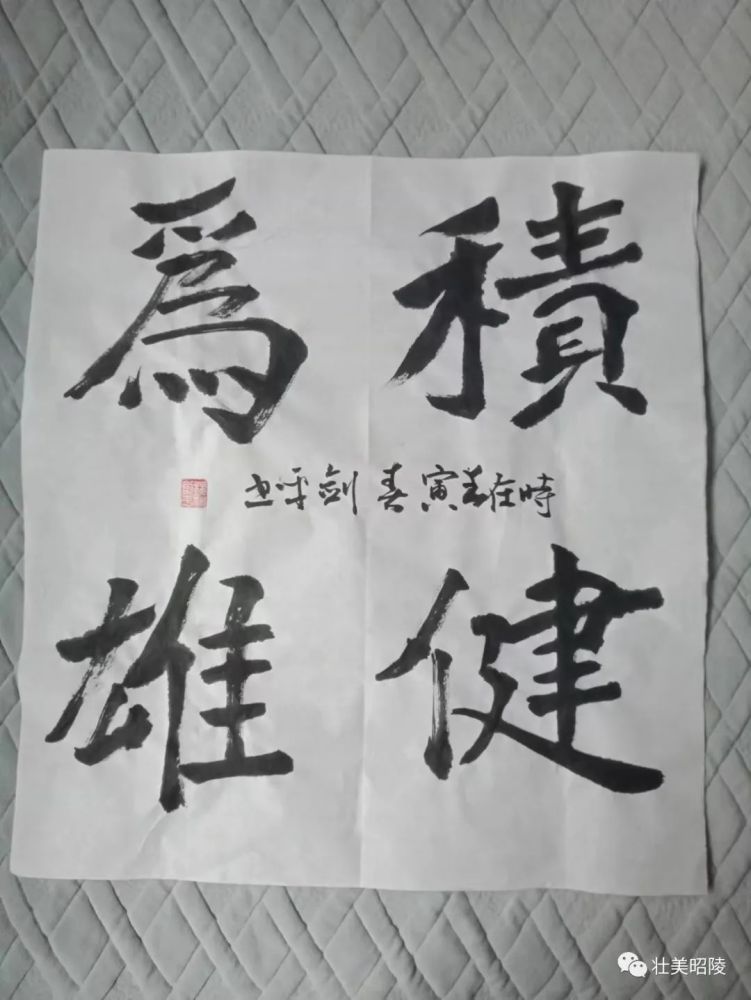 積健
爲雄
時在壬寅春剑平书
壮美昭陵